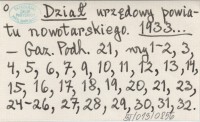 Dział urzędowy powia-
tu nowotarskiego. 1933...
— Gaz. Podh. 21, nry 1-2, 3,
4, 5, 6, 7, 9, 10, 11, 12, 13, 14,
15, 16, 17, 18, 19, 20, 21, 23,
24-26, 27, 28, 29, 30, 31, 32.